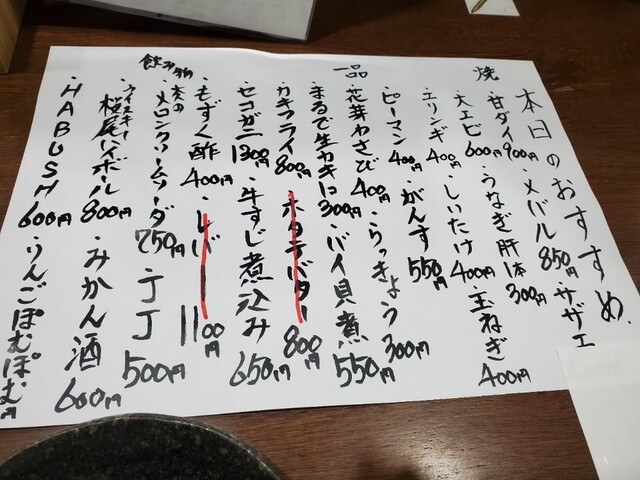 本日のおすすめ
焼
・甘ダイ900円・メバル850円・サザエ
・大エビ600円・うなぎ肝1本300円
・エリンギ400円・しいたけ400円・玉ねぎ400円
・ピーマン400円・がんす550円
一品
・花芽わさび400円・らっきょう300円
・まるで生カキに300円・バイ貝煮550円
・カキフライ800円・ホタテバター800円
・セコガニ1300円・牛すじ煮込み650円
・もずく酢400円・レバー1100円
飲み物
・大人のメロンクリームソーダ750円・JJ500円
・ウイスキー桜尾ハイボール800円・みかん酒600円
・HABUSH600円・りんごぽむぽむ円